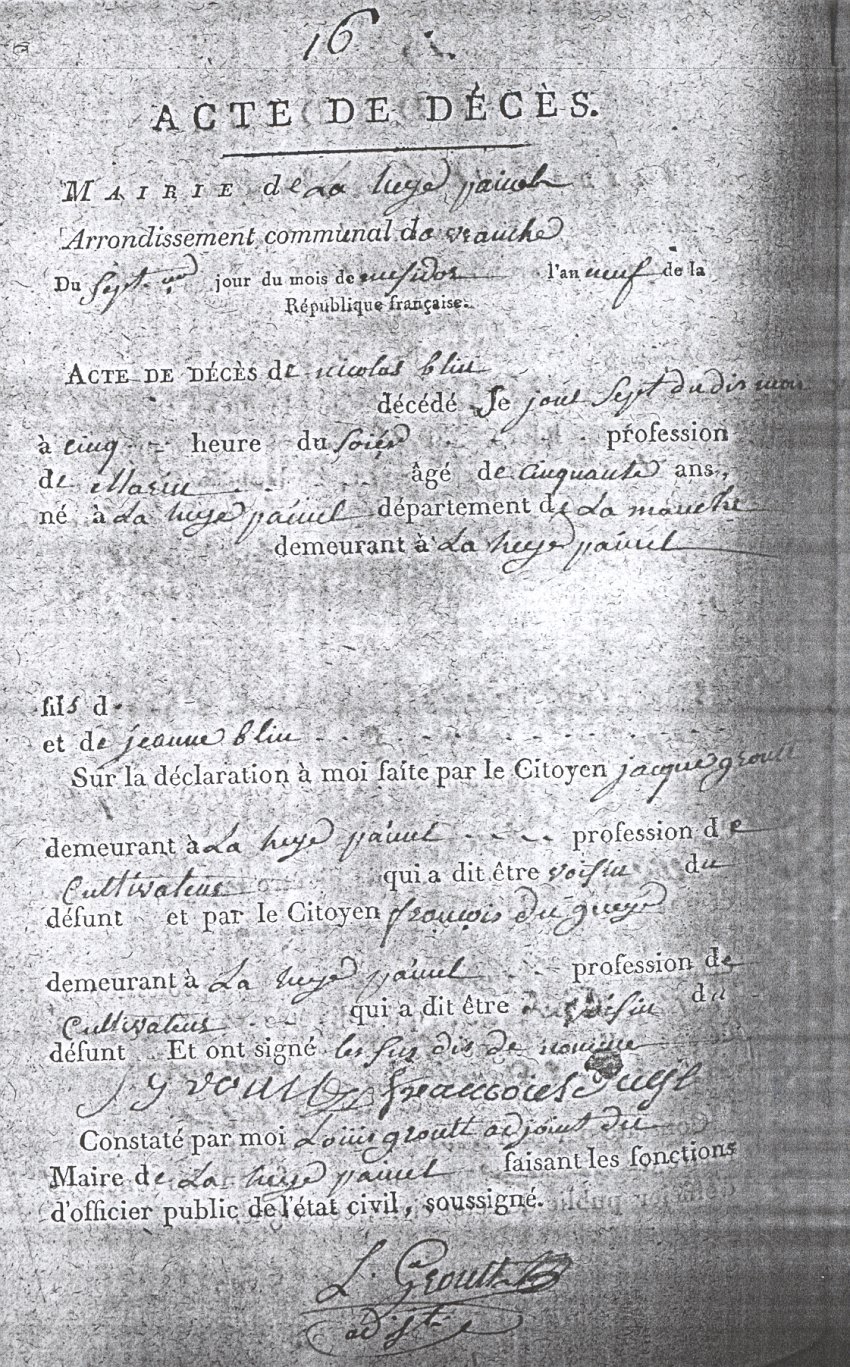 16
ACTE DE DÉCÈS.
MAIRIE de La heye painel
Arrondissement communal de
Du Sept jour du mois de mesidor l'an neuf de la
République françaiſe.
ACTE DE DÉCÈS de nicolas blin
décédé le jour Sept dudis mois
à cinq heure du soier profeſſion
de Marin âgé de cinquante ans,
né à La heye painel département de La manche
demeurant à La heye painel
fils d
et de jeanne blin
Sur la déclaration à moi faite par le Citoyen jacque groult
demeurant à La heye painel profeſſion de
Cultivateur qui a dit être voisin du
défunt et par le Citoyen françois du
demeurant à La heye painel profeſſion de
Cultivateur qui a dit être voisin du
défunt Et ont signé les sus dis de nomme
Constaté par moi Louis groult adjoint du
Maire de La heye painel faisant les fonctions
d'officier public de l'état civil, soussigné.
L. Groult